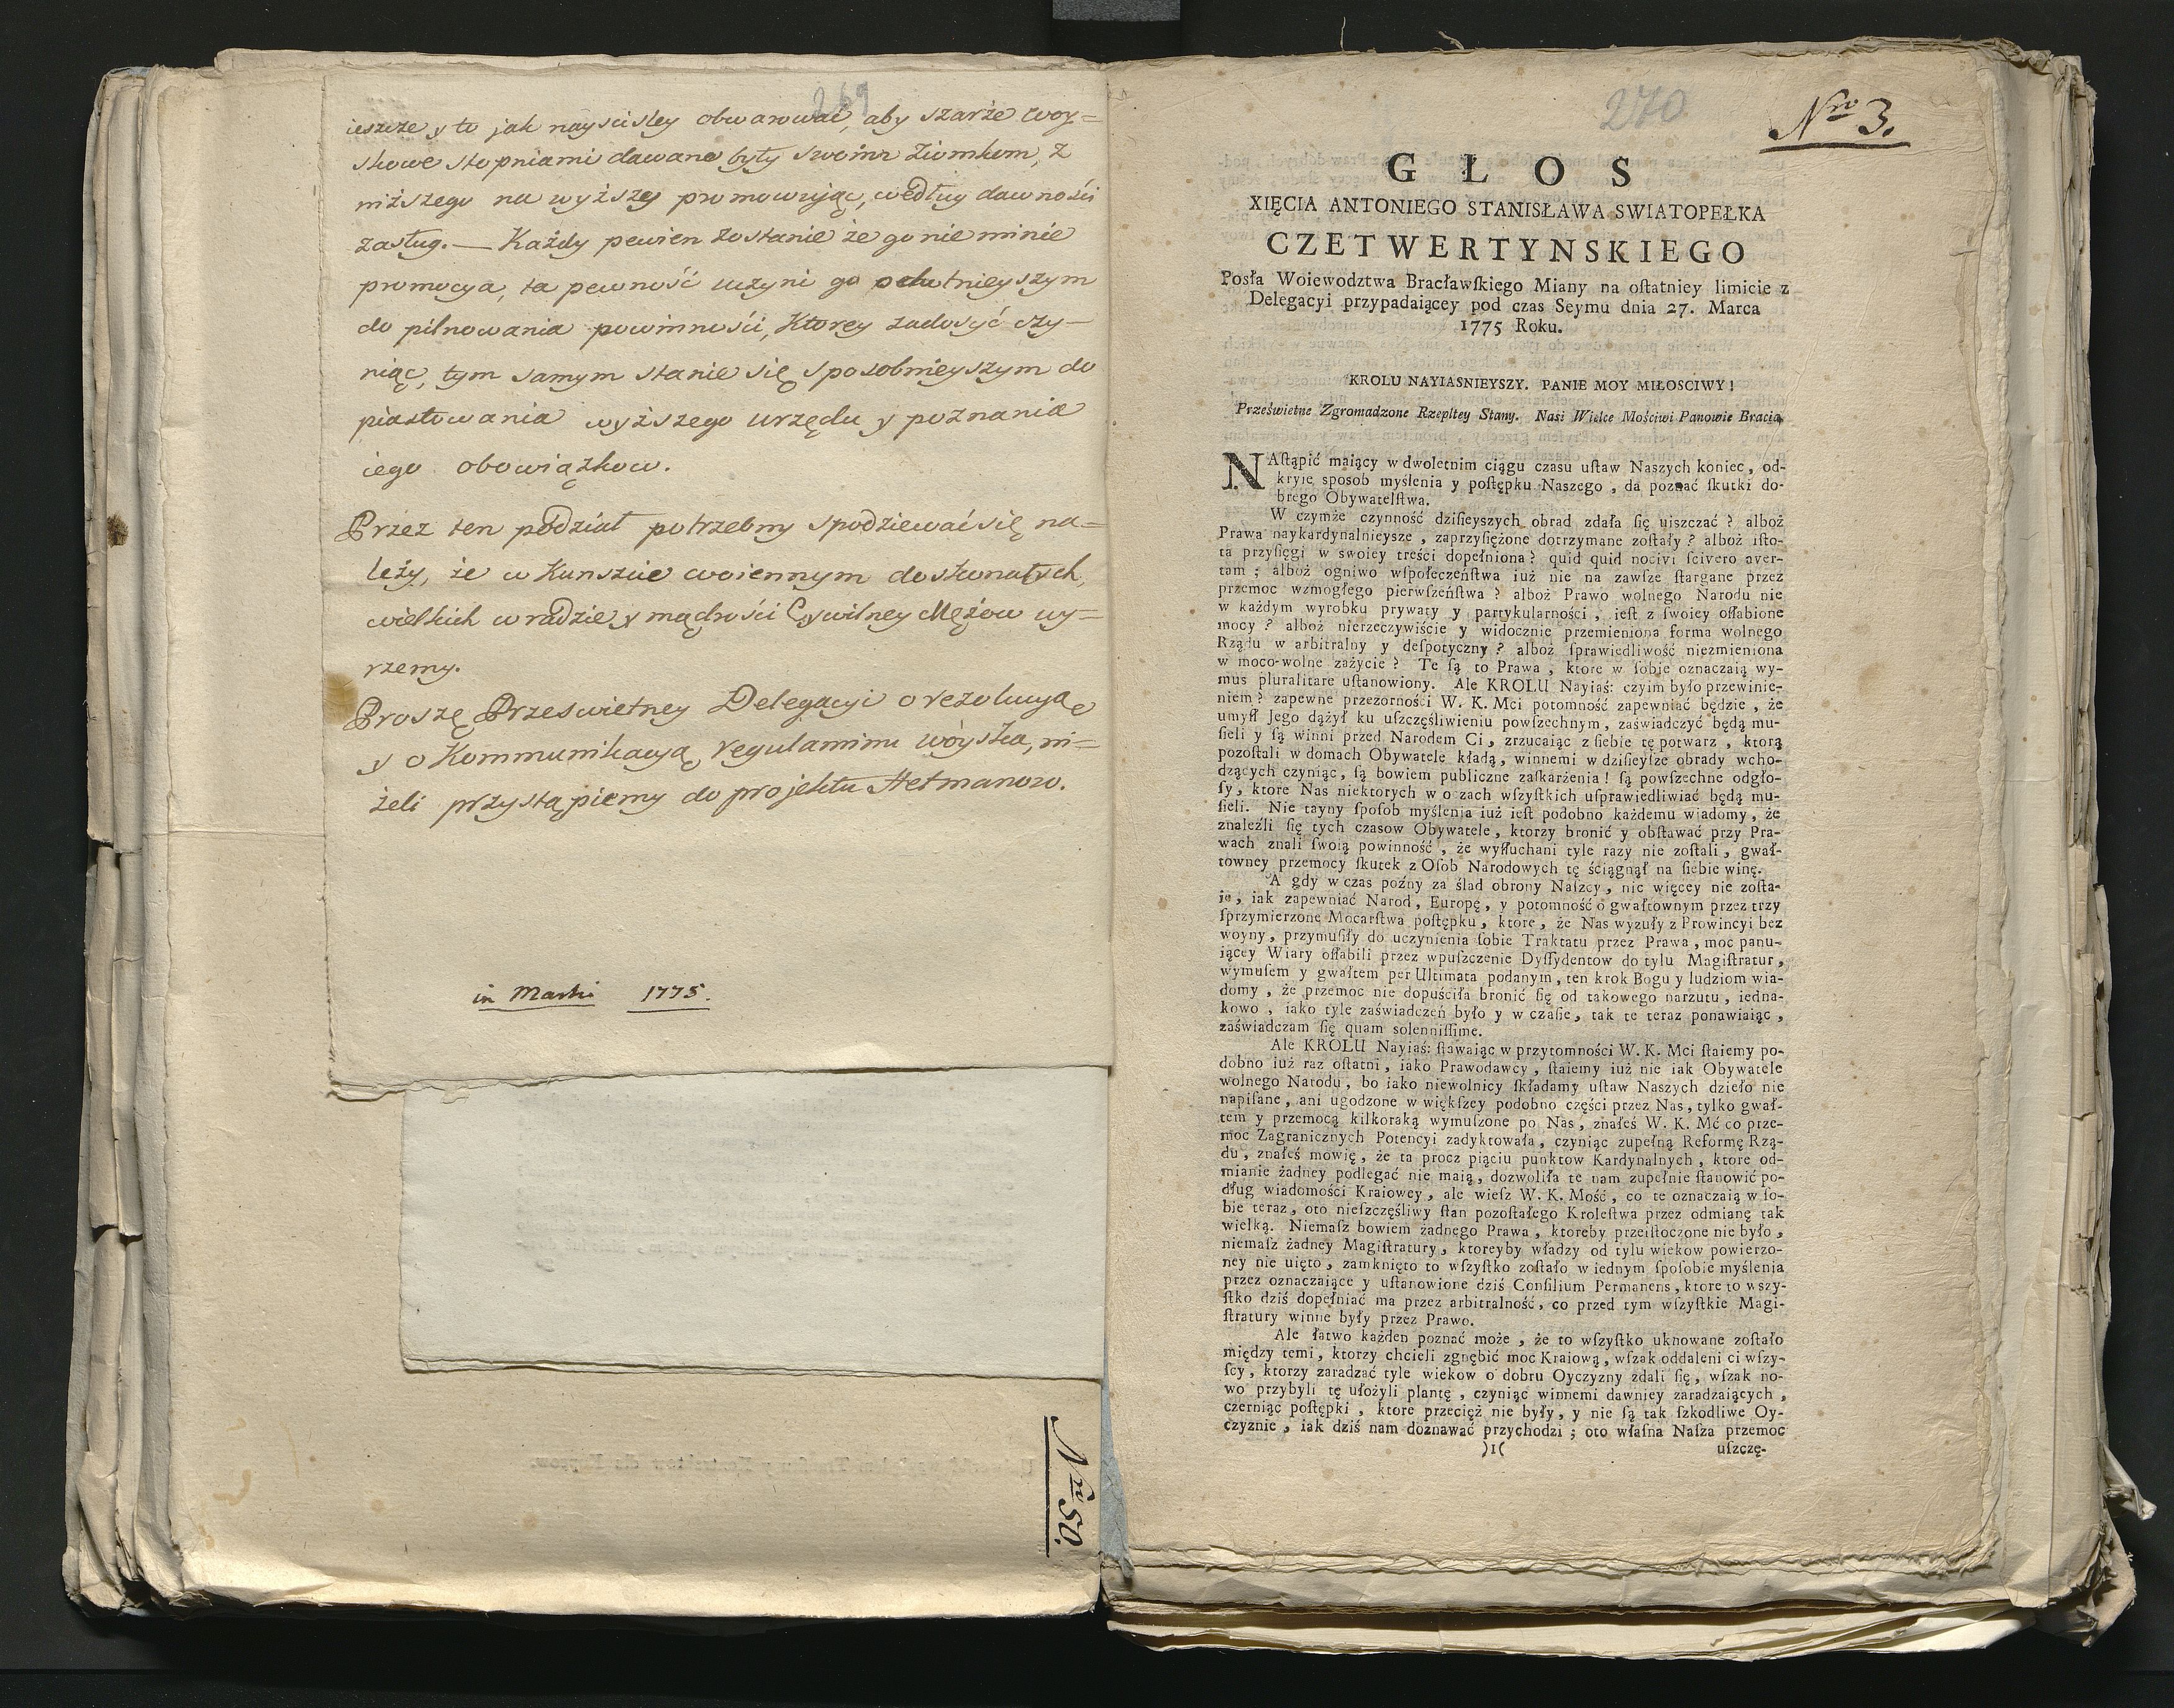 269
ieszcze y to jak nayscisley obwarować, aby szarże woy=
skowe stopniami dawane były swoim Ziomkom, z
niższego na wyższy promowując, według dawności
zasług. — Każdy pewien zostanie że go nie minie
promocya, ta pewność uczyni go ochotnieyszym
do pilnowania powinności, Ktorey zadosyć czy-
niąc, tym samym stanie się sposobnieyszym do
piastowania wyższego urzędu y poznania
iego obowiązkow.
Przez ten podział potrzebny spodziewać się na=
leży, że w Kunszcie woiennym doskonałych,
wielkich w radzie y mądrości Cywilney Mężow uy=
rzemy.
Proszę Prześwietney Delegacyi o rezolucyą
y o Kommunikacyą regulaminu wóyska, ni=
żeli przystąpiemy do projektu Hetmanow.
in Martii 1775.
Nro 50.
270
Nro 3.
GŁOS
XIĘCIA ANTONIEGO STANISŁAWA SWIATOPEŁKA
CZETWERTYNSKIEGO
Posła Woiewodztwa Bracławſkiego Miany na oſtatniey limicie z
Delegacyi przypadaiącey pod czas Seymu dnia 27. Marca
1775 Roku.
KROLU NAYIASNIEYSZY. PANIE MOY MIŁOSCIWY!
Prześwietne Zgromadzone Rzepltey Stany. Nasi Wielce Mościwi Panowie Bracia,
NAſtąpić maiący w dwoletnim ciągu czasu uſtaw Naszych koniec, od-
kryie sposob myślenia y poſtępku Naszego, da poznać ſkutki do-
brego Obywatelſtwa.
W czymże czynność dzisieyszych obrad zdała się uiszczać? alboż
Prawa naykardynalnieysze, zaprzyſiężone dotrzymane zoſtały? alboż iſto-
ta przyſięgi w swoiey treści dopełniona? quid quid nocivi ſcivero aver-
tam; alboż ogniwo wſpołeczeńſtwa iuż nie na zawſze ſtargane przez
przemoc wzmogłego pierwſzeńſtwa? alboż Prawo wolnego Narodu nie
w każdym wyrobku prywaty y partykularności, ieſt z ſwoiey oſłabione
mocy? alboż nierzeczywiście y widocznie przemieniona forma wolnego
Rządu w arbitralny y deſpotyczny? alboż ſprawiedliwość niezmieniona
w moco-wolne zażycie? Te ſą to Prawa, ktore w ſobie oznaczaią wy-
mus pluralitate uſtanowiony. Ale KROLU Nayiaś: czyim było przewinie-
niem? zapewne przezorności W. K. Mci potomność zapewniać będzie, że
umyſł Jego dążył ku uſzczęśliwieniu powſzechnym, zaświadczyć będą mu-
ſieli y ſą winni przed Narodem Ci, zrzucaiąc z ſiebie tę potwarz, ktorą
pozoſtali w domach Obywatele kładą, winnemi w dziſieyſze obrady wcho-
dzących czyniąc, ſą bowiem publiczne zaſkarżenia! ſą powſzechne odgło-
ſy, ktore Nas niektorych w o zach wſzyſtkich uſprawiedliwiać będą mu-
ſieli. Nie tayny ſpoſob myślenia iuż ieſt podobno każdemu wiadomy, że
znaleźli ſię tych czasow Obywatele, ktorzy bronić y obſtawać przy Pra-
wach znali ſwoią powinność, że wyſłuchani tyle razy nie zoſtali, gwał-
towney przemocy ſkutek z Oſob Narodowych tę ściągnął na ſiebie winę.
A gdy w czas poźny za ślad obrony Naſzey, nic więcey nie zoſta-
ie, iak zapewniać Narod, Europę, y potomność o gwałtownym przez trzy
ſprzymierzone Mocarſtwa poſtępku, ktore, że Nas wyzuły z Prowincyi bez
woyny, przymuſiły do uczynienia ſobie Traktatu przez Prawa, moc panu-
iącey Wiary oſłabili przez wpuſzczenie Dyſſydentow do tylu Magiſtratur,
wymuſem y gwałtem per Ultimata podanym, ten krok Bogu y ludziom wia-
domy, że przemoc nie dopuściła bronić ſię od takowego narzutu, iedna-
kowo, iako tyle zaświadczeń było y w czaſie, tak te teraz ponawiaiąc,
zaświadczam ſię quam solenniſſime.
Ale KROLU Nayiaś: ſtawaiąc w przytomności W. K. Mci ſtaiemy po-
dobno iuż raz oſtatni, iako Prawodawcy, ſtaiemy iuż nie iak Obywatele
wolnego Narodu, bo iako niewolnicy ſkładamy uſtaw Naszych dzieło nie
napiſane, ani ugodzone w więkſzey podobno części przez Nas, tylko gwał-
tem y przemocą kilkoraką wymuſzone po Nas, znałeś W. K. Mć co prze-
moc Zagranicznych Potencyi zadyktowała, czyniąc zupełną Reformę Rzą-
du, znałeś mowię, że ta procz piąciu punktow Kardynalnych, ktore od-
mianie żadney podlegać nie maią, dozwoliła te nam zupełnie ſtanowić po-
dług wiadomości Kraiowey, ale wieſz W. K. Mość, co te oznaczaią w ſo-
bie teraz, oto nieſzczęśliwy ſtan pozoſtałego Kroleſtwa przez odmianę tak
wielką. Niemaſz bowiem żadnego Prawa, ktoreby przeiſtoczone nie było,
niemaſz żadney Magiſtratury, ktoreyby władzy od tylu wiekow powierzo-
ney nie uięto, zamknięto to wſzyſtko zoſtało w iednym ſpoſobie myślenia
przez oznaczaiące y uſtanowione dziś Conſilium Permanens, ktore to wszy-
ſtko dziś dopełniać ma przez arbitralność, co przed tym wſzyſtkie Magi-
ſtratury winne były przez Prawo.
Ale łatwo każden poznać może, że to wſzyſtko uknowane zoſtało
między temi, ktorzy chcieli zgnębić moc Kraiową, wſzak oddaleni ci wſzy-
ſcy, ktorzy zaradzać tyle wiekow o dobru Oyczyzny zdali ſię, wſzak no-
wo przybyli tę ułożyli plantę, czyniąc winnemi dawniey zaradzaiących,
czerniąc poſtępki, ktore przecięż nie były, y nie ſą tak ſzkodliwe Oy-
czyznie, iak dziś nam doznawać przychodzi; oto właſna Naſza przemoc
)1( uſzczę-